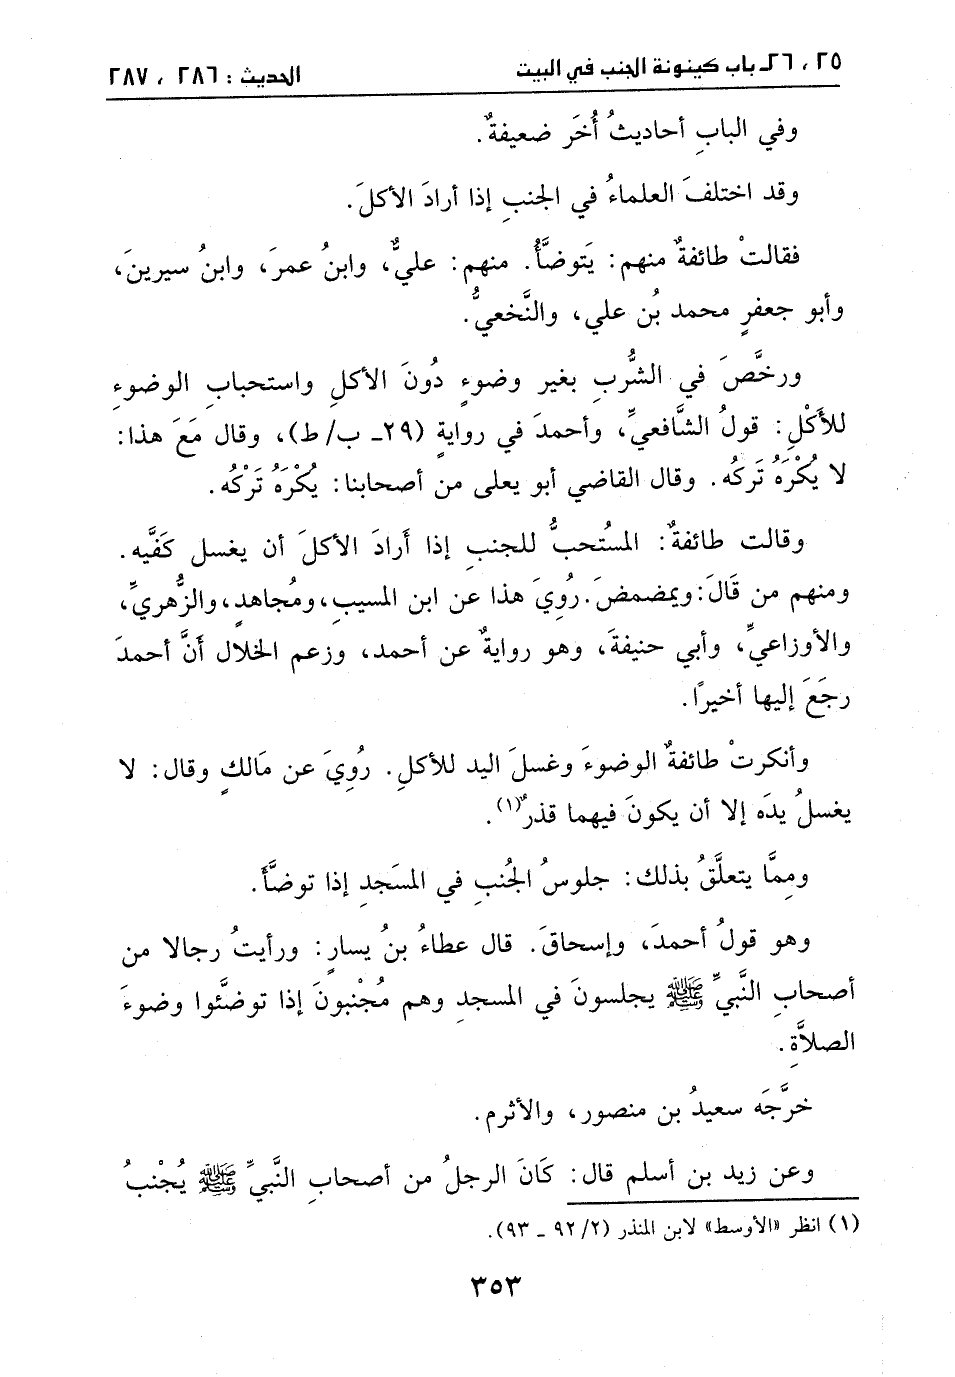 ٢٥ ، ٢٦ـ باب كينونة الجنب في البيت الحديث : ٢٨٦ ، ٢٨٧
وفي البابِ أحاديثُ أُخَر ضعيفةٌ.
وقد اختلفَ العلماءُ في الجنبِ إذا أرادَ الأكلَ.
فقالتْ طائفةٌ منهم: يَتوضَّأُ. منهم: عليٌّ، وابنُ عمرَ، وابنُ سيرينَ،
وأبو جعفرٍ محمد بُن علي، والنَّخعيُّ.
ورخَّصَ في الشُّربِ بغير وضوءٍ دُونَ الأكلِ واستحبابِ الوضوءِ
للأَكْلِ: قولُ الشَّافعيِّ، وأحمدَ في روايةٍ (٢٩ـ ب/ط)، وقال مَعَ هذا:
لا يُكْرَهُ تَركُه. وقال القاضي أبو يعلى من أصحابنا: يُكْرَهُ تَرْكُه.
وقالت طائفةٌ: المستُحبُّ للجنبِ إذا أَرادَ الأكلَ أن يغسل كَفَّيه.
ومنهم من قَالَ: ويمضمضَ. رُوِيَ هذا عن ابن المسيبِ، ومُجاهدٍ، والزُّهريِّ،
والأوزاعيِّ، وأبي حنيفةَ، وهو روايةٌ عن أحمد، وزعم الخلال أَنَّ أحمدَ
رجَعَ إليها أخيرًا.
وأنكرتْ طائفةٌ الوضوءَ وغسلَ اليد للأكلِ. رُوِيَ عن مَالكٍ وقال: لا
يغسلُ يدَه إلا أن يكونَ فيهما قذرٌ(١).
ومِمَّا يتعلَّقُ بذلك: جلوسُ الجُنبِ في المسَجدِ إذا توضَّأَ.
وهو قولُ أحمدَ، وإسحاقَ. قال عطاءُ بنُ يسارٍ: ورأيتُ رجالا من
أصحابِ النَّبيِّ ﷺ يجلسونَ في المسجدِ وهم مُجْنبونَ إذا توضَّئوا وضوءَ
الصلاَّةِ.
خرَّجَه سعيدُ بن منصور، والأثرم.
وعن زيد بن أسلم قال: كَانَ الرجلُ من أصحابِ النَّبيِّ ﷺ يُجْنبُ
(١) انظر «الأوسط» لابن المنذر (٢/ ٩٢ ـ ٩٣).
٣٥٣